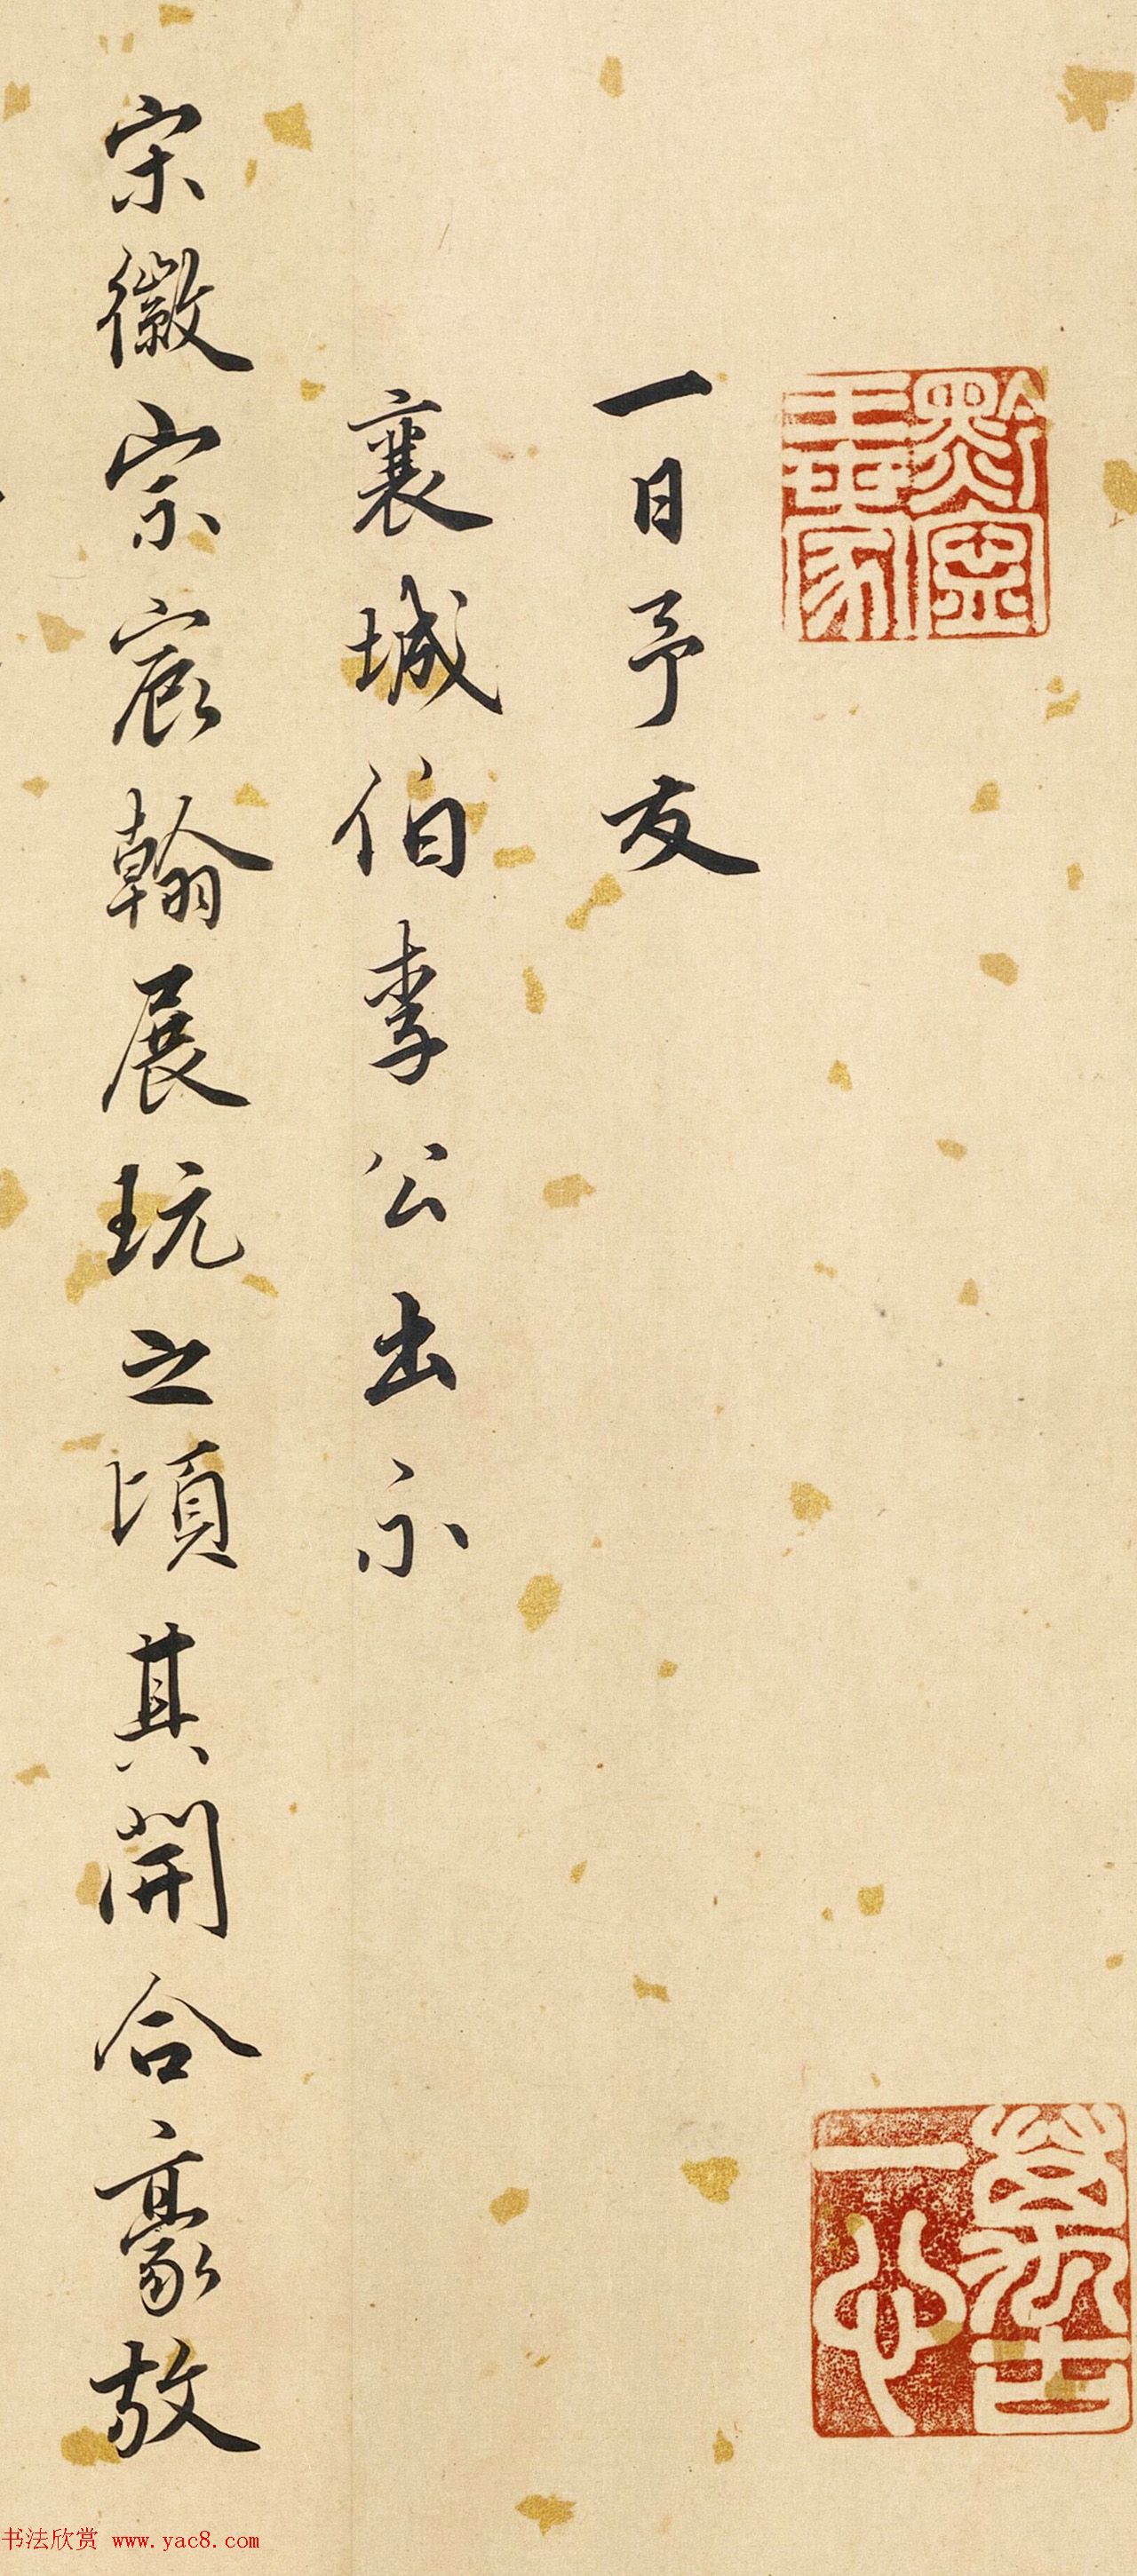 一日予友
襄城伯李公出示
宋徽宗宸翰展玩之頃其開合豪放
黔寧王子孫永保
書法欣赏 www.yac8.com